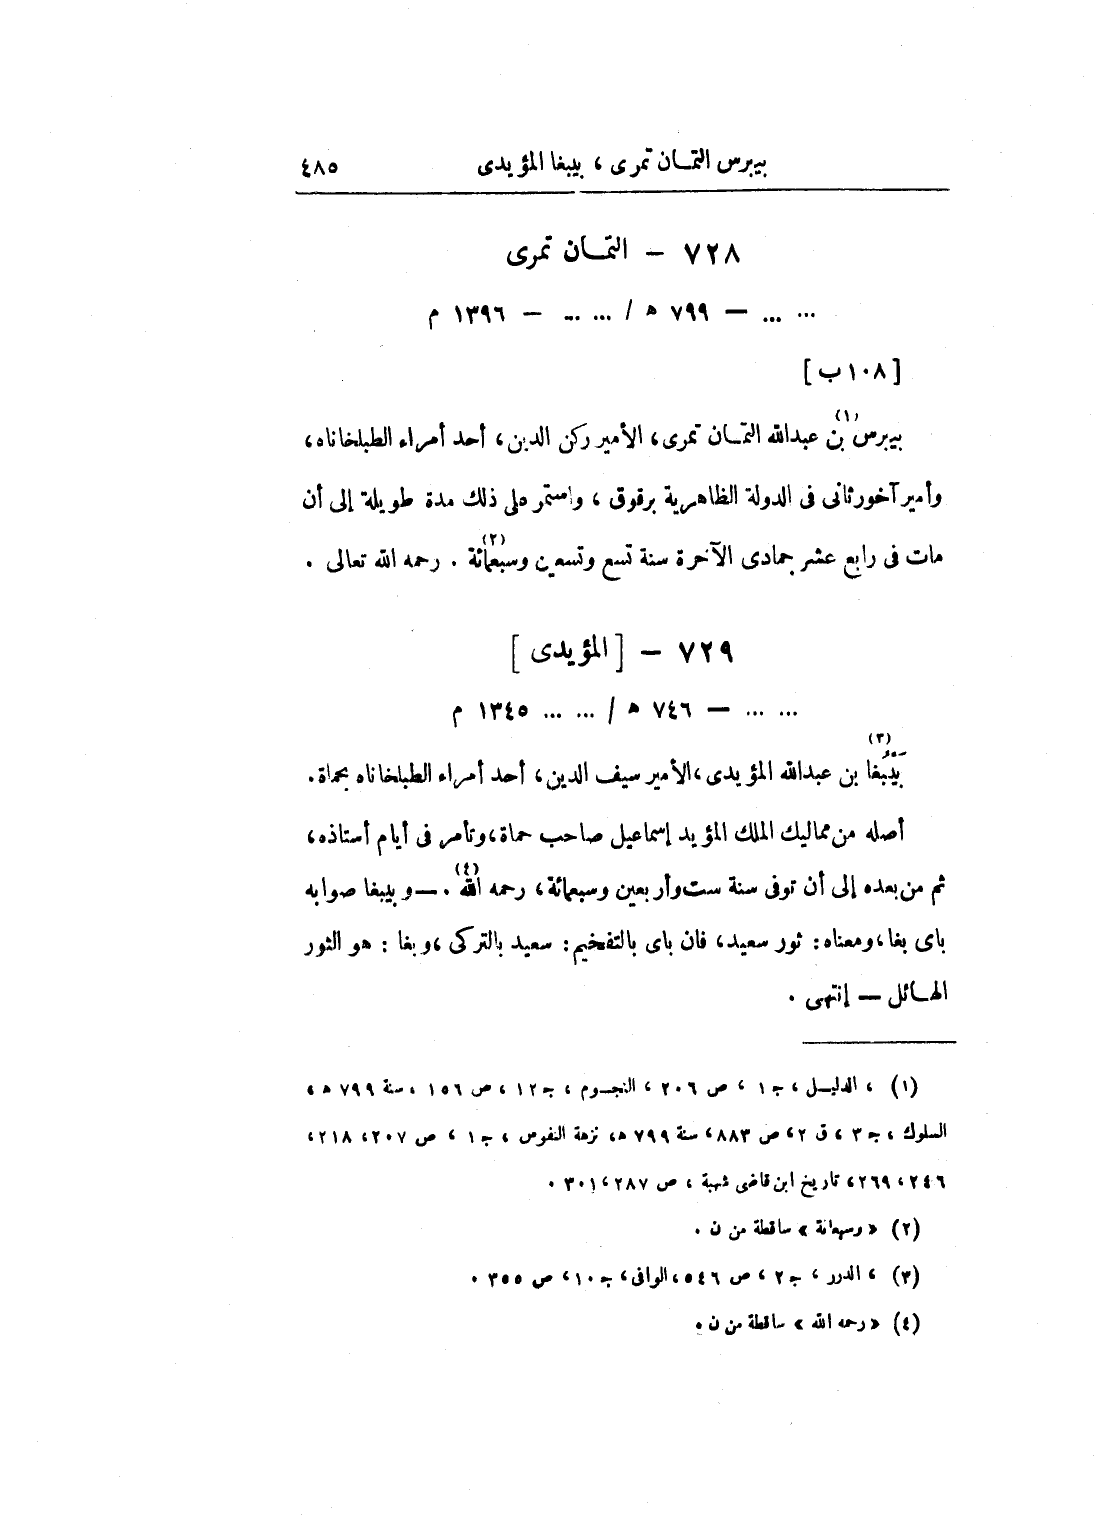 بيبرس التمان تمرى ، بيبغا المؤيدى ٤٨٥
٧٢٨ – التمان تمرى
... ... – ٧٩٩ ه / ... ... – ١٣٩٦ م
[ ١٠٨ ب ]
بيبرس (١) بن عبدالله التمان تمرى، الأمير ركن الدين، أحد أمراء الطبلخاناه،
وأمير آخور ثانى فى الدولة الظاهرية برقوق ، واستمر على ذلك مدة طويلة إلى أن
مات فى رابع عشر جمادى الآخرة سنة تسع وتسعين وسبعمائة (٢) . رحمه الله تعالى .
٧٢٩ – [ المؤيدى ]
... ... – ٧٤٦ ه / ... ... ١٣٤٥ م
بيبغا (٣) بن عبدالله المؤيدى ،الأمير سيف الدين، أحد أمراء الطبلخاناه بحماة.
أصله من مماليك الملك المؤيد إسماعيل صاحب حماة، وتأمر فى أيام أستاذه،
ثم من بعده إلى أن توفى سنة ست وأربعين وسبعمائة، رحمه الله (٤) . – و بيبغا صوابه
باى بغا، ومعناه: ثور سعيد، فان باى بالتفخيم: سعيد بالتركى ، وبغا : هو الثور
الهائل – إنتهى .
(١) ، الدليل ، ج ١ ، ص ٢٠٦ ، النجوم ، ج ١٢ ، ص ١٥٦ ، سنة ٧٩٩ ه ،
السلوك ، ج ٣ ، ق ٢، ص ٨٨٣، سنة ٧٩٩ ه، نزهة النفوس ، ج ١ ، ص ٢٠٧، ٢١٨،
٢٤٦ ، ٢٦٩، تاريخ ابن قاضى شهبة ، ص ٢٨٧، ٣٠١ .
(٢) « وسبعمائة » ساقطة من ن .
(٣) ، الدرر ، ج ٢ ، ص ٥٤٦ ، الوافى، ج ١٠، ص ٣٥٥ .
(٤) « رحمه الله » ساقطة من ن .